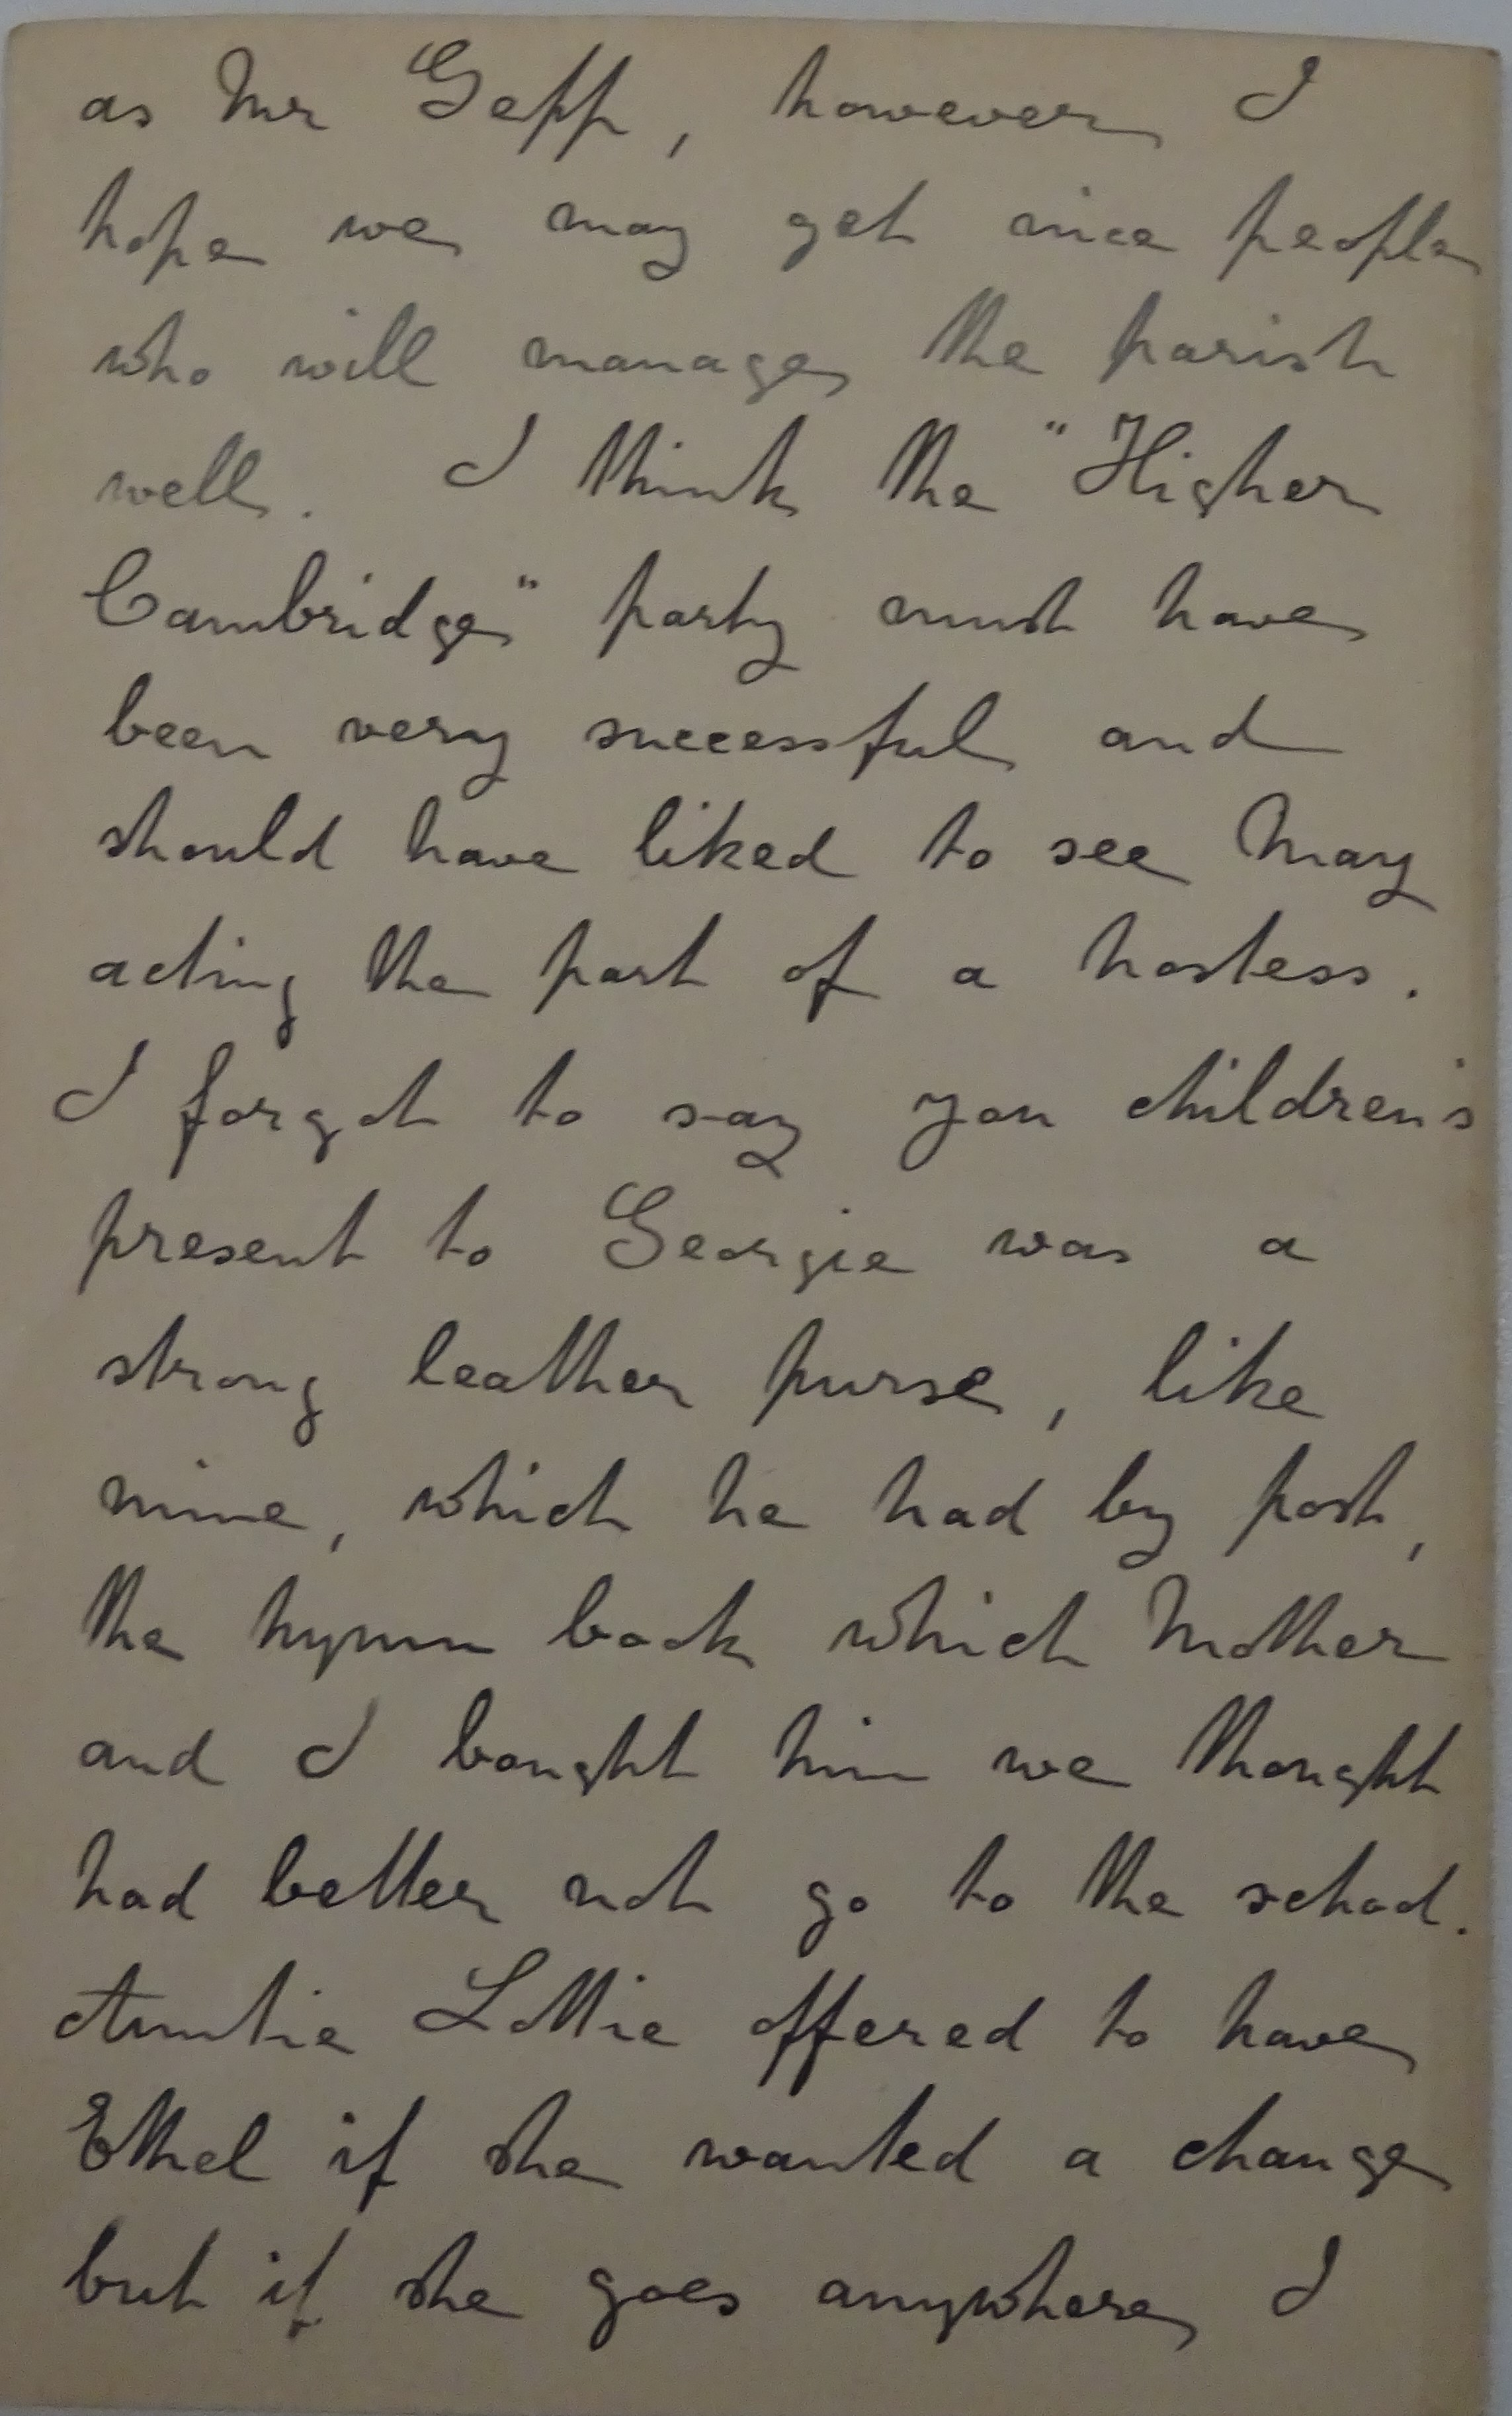 as Mr Gepp, however I
hope we may get nice people
who will manage the parish
well. I think the "Higher
Cambridge" party must have
been very successful and
should have liked to see May
acting the part of a hostess.
I forgot to say you children's
present to Georgie was a
strong leather purse, like
mine, which he had by post,
the hymn book which Mother
and I bought him we thought
had better not go to the school.
Auntie Lottie offered to have
Ethel if she wanted a change
but if she goes anywhere I